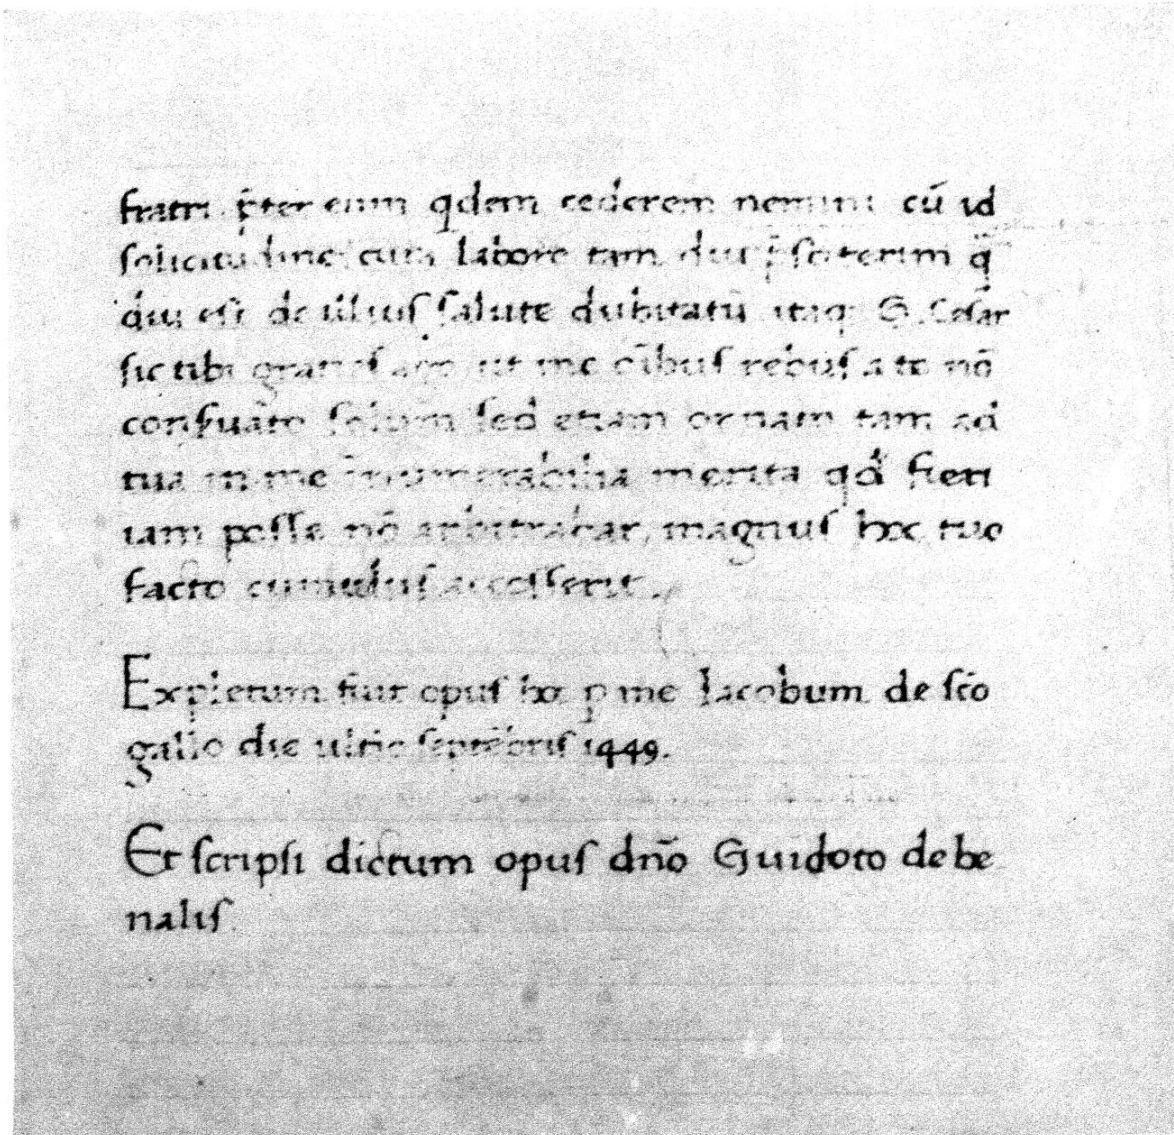 fratri p̄ter eum qdem cederem nemini cū id
solicitudine cura labore tam diu p̄stiterim q̄
diu est de illius salute dubitatū itaq; G. Cesar
sic tibi gratias ago ut me oībus rebus a te nō
conſuato solum sed etiam ornato tam ad
tua in me innumerabilia merita qđ fieri
iam posse nō arbitrabar, magnus hoc tuo
facto cumulus accesserit.
Expletum fuit opus hoc p me Iacobum de sc̄o
gallo die ultīo septēbris 1449.
Et scripsi dictum opus dn̄o Guidoto de be
nalis.